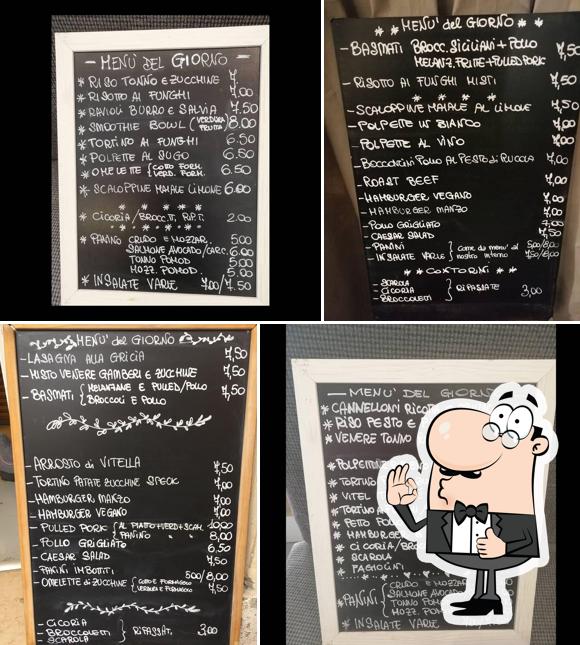 — MENU' DEL GIORNO —
* RISO TONNO E ZUCCHINE 7
* RISOTTO AI FUNGHI 7,00
* RAVIOLI BURRO E SALVIA 7,50
* SMOOTHIE BOWL (VERDURA FRUTTA) 8.00
* TORTINO AI FUNGHI 6.50
* POLPETTE AL SUGO 6.50
* OMELETTE { COTTO FORM. VERD. FORM. 6.50
* SCALOPPINE MAIALE LIMONE 6.00
* CICORIA/BROCC.TI, RIP.TI. 2.00
* PANINO CRUDO E MOZZAR. 5.00
SALMONE AVOCADO/CARC. 6.00
TONNO POMOD 5.00
MOZZ. POMOD. 5.00
* INSALATE VARIE 7.00/7.50
* * MENU' del GIORNO * *
- BASMATI BROCC. SICILIANI + POLLO 7,50
MELANZ. FRITTE + PULLED PORK
- RISOTTO AI FUNGHI MISTI 7,50
- SCALOPPINE MAIALE AL LIMONE 7,50
- POLPETTE IN BIANCO 7,00
- POLPETTE AL VINO 7,00
- BOCCONCINI POLLO AL PESTO di RUCOLA 7,00
- ROAST BEEF 7,00
- HAMBURGER VEGANO 7,00
- HAMBURGER MANZO 7,00
- POLLO GRIGLIATO 7,00
- CAESAR SALAD 7,50
- PANINI } Come da menu' al 5,00/8,00
- INSALATE VARIE } nostro interno 7,50/8,00
* * CONTORNI * *
- SCAROLA
- CICORIA } RIPASSATE 3,00
- BROCCOLETTI
MENU' del GIORNO
- LASAGNA ALLA GRICIA 7,50
- MISTO VENERE GAMBERI E ZUCCHINE 7,50
- BASMATI { MELANZANE E PULLED/POLLO 7,50
BROCCOLI E POLLO
- ARROSTO di VITELLA 7,50
- TORTINO PATATE ZUCCHINE SPECK 7,00
- HAMBURGER MANZO 7,00
- HAMBURGER VEGANO 7,00
- PULLED PORK { AL PIATTO+VERD+SCAM. 10,00
PANINO " " 8,00
- POLLO GRIGLIATO 6,50
- CAESAR SALAD 7,50
- PANINI IMBOTTITI 5,00/8,00
- OMELETTE di ZUCCHINE { COTTO E FORMAGGIO 7,50
VERDURE E FORMAGGIO 7,50
- CICORIA
- BROCCOLETTI } RIPASSATI 3,00
- SCAROLA
— MENU' DEL GIORNO
* CANNELLONI
* RISO PESTO E
* VENERE TONNO
* TORTINO
* VITEL
* PETTO POLLO
* HAMBURGER
* CICORIA/BROC
* SCAROLA
* FAGIOLINI
* PANINI { CRUDO E MOZZAR
SALMONE AVOCADO
TONNO POMOD
MOZZ. POMOD
* INSALATE VARIE